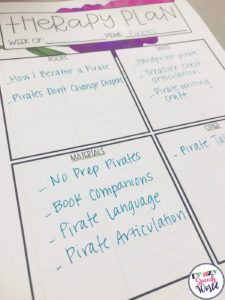 THERAPY PLAN
WEEK OF: THEME: Pirates
BOOKS
- How I Became a Pirate
- Pirates Don't Change Diapers
- Handprint pirate
- Treasure chest articulation
- Pirate writing craft
MATERIALS
- No Prep Pirates
- Book Companions
- Pirate Language
- Pirate Articulation
OTHER
- Pirate
Speech World